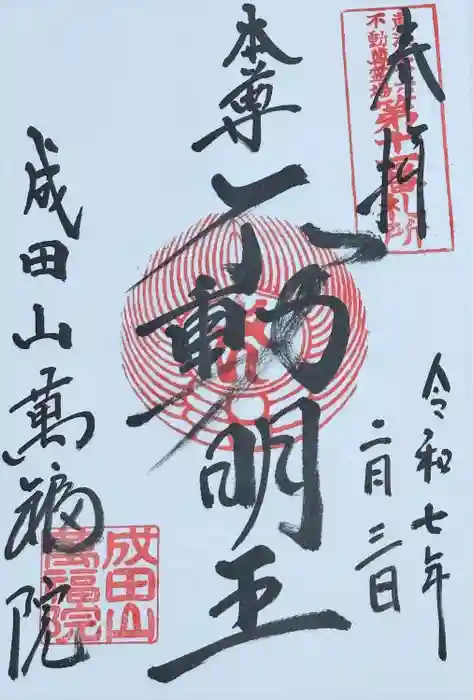 奉拝
不動尊霊場
札所
令和七年
二月三日
本尊
不動明王
成田山萬福院
成田山
萬福院